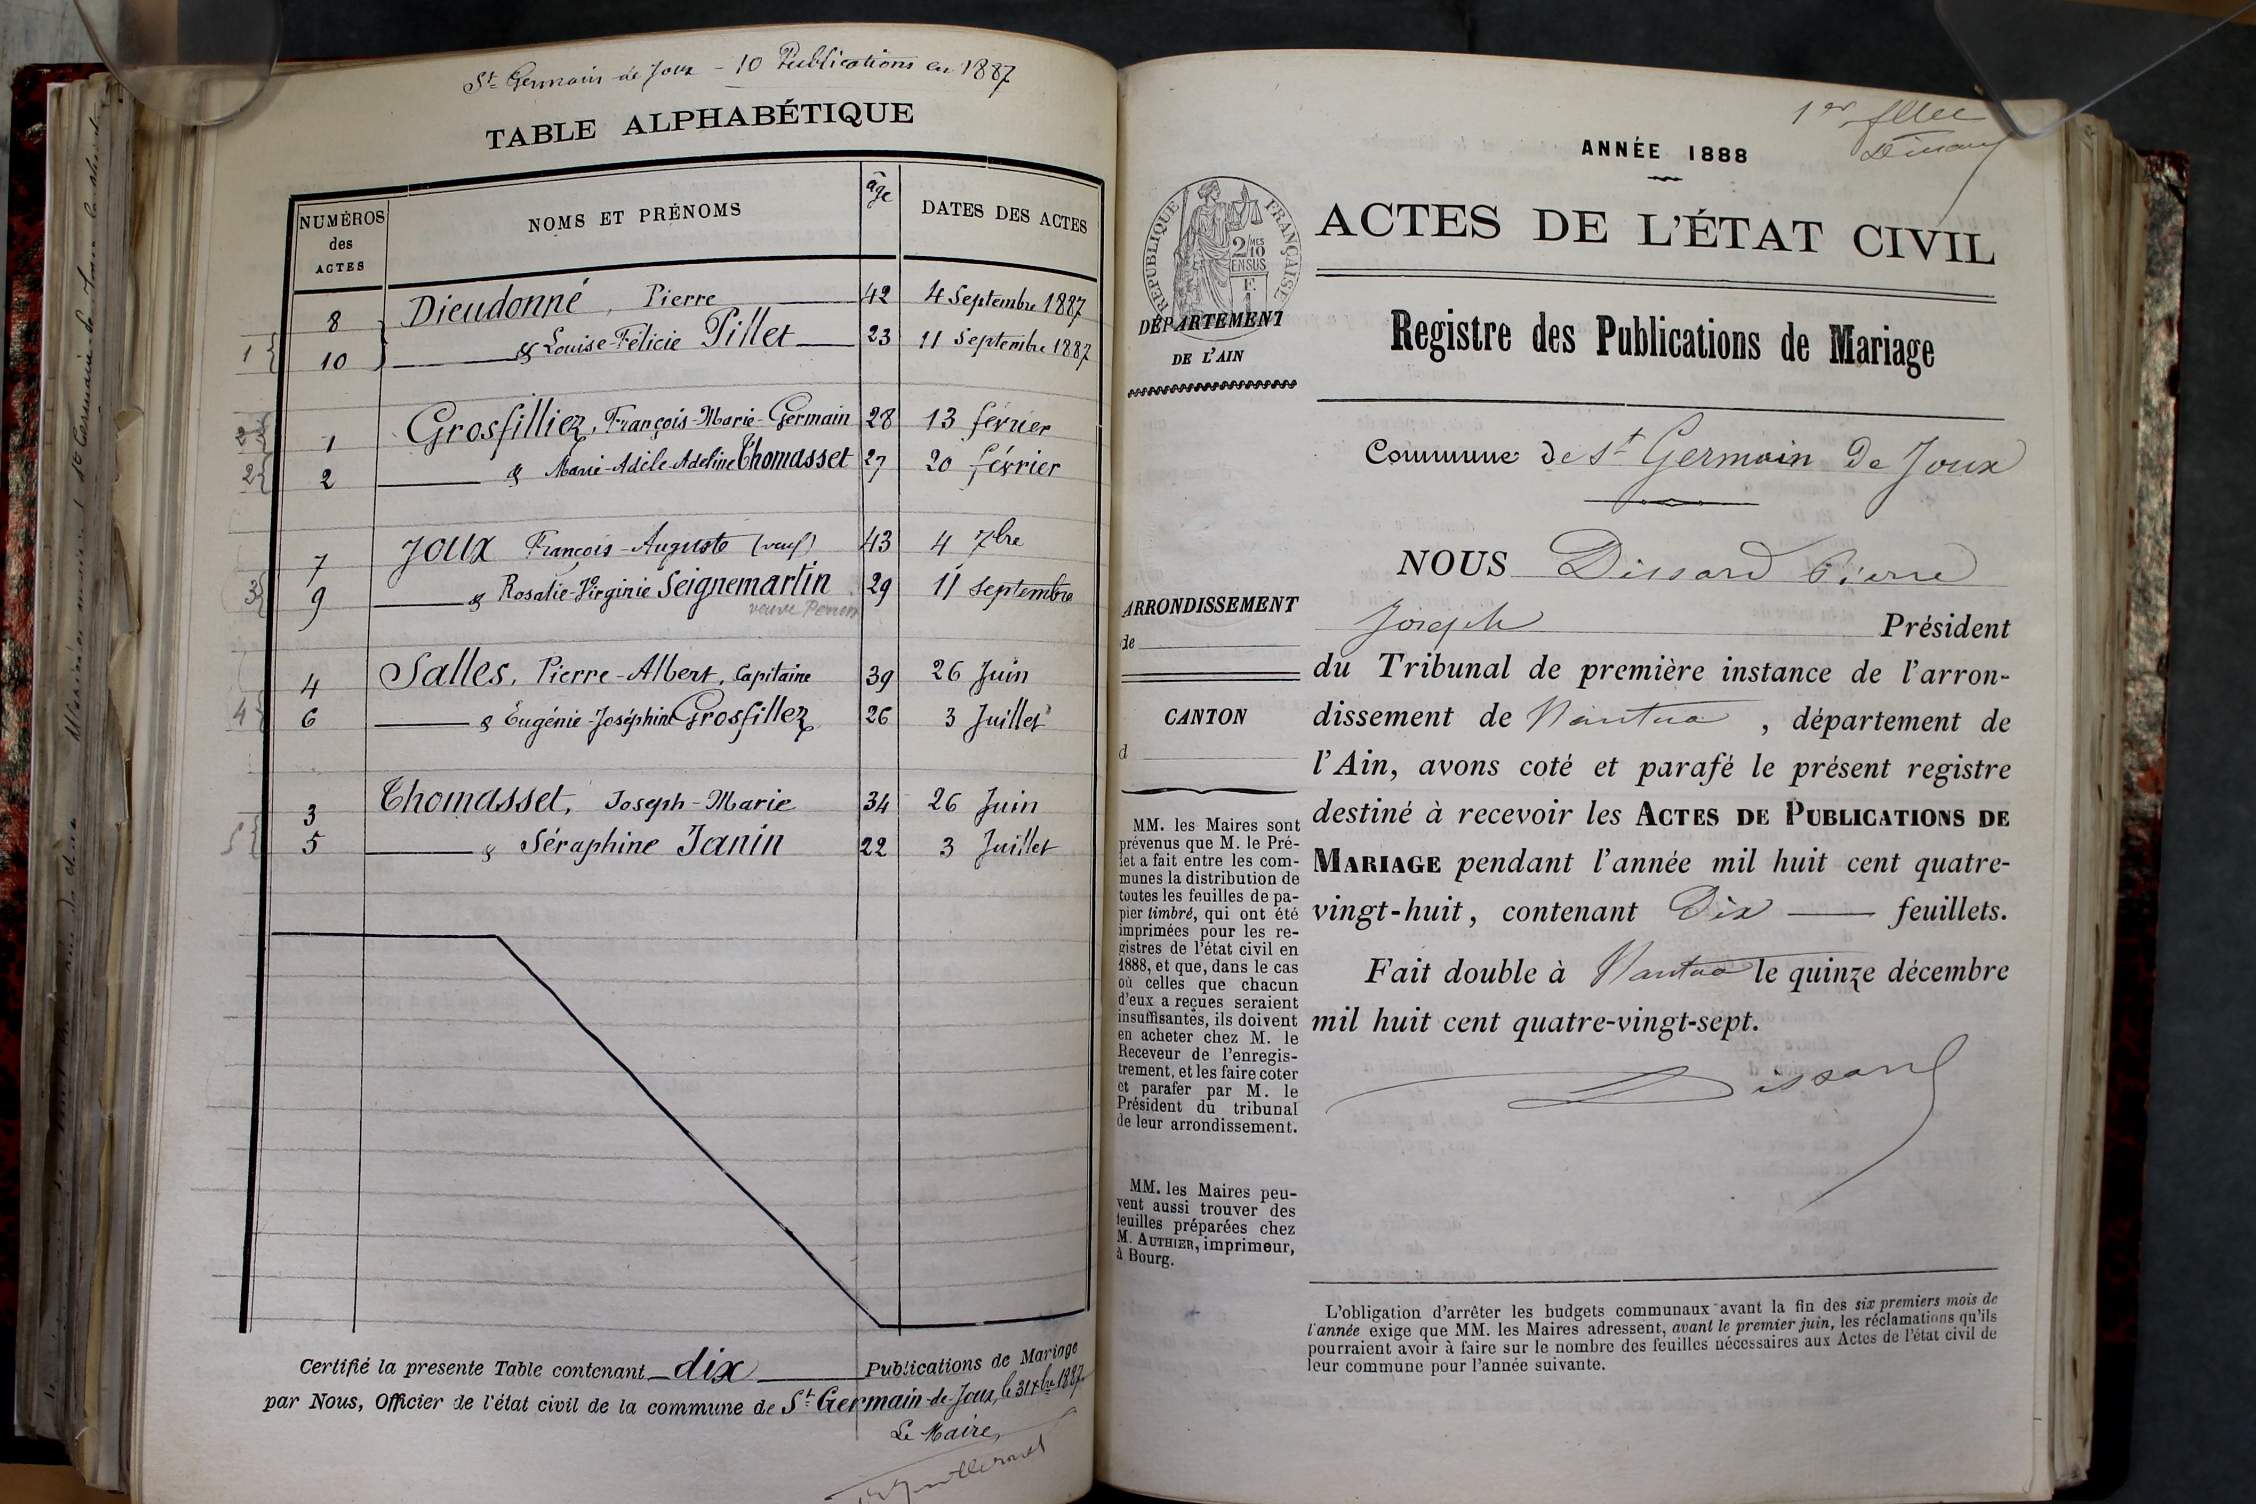 St Germain-de-Joux - 10 Publications en 1887
TABLE ALPHABÉTIQUE
NUMÉROS des ACTES NOMS ET PRÉNOMS âge DATES DES ACTES
8 Dieudonné, Pierre 42 4 Septembre 1887
1 10 & Louise-Félicie Pillet 23 11 Septembre 1887
1 Grosfilliez, François-Marie-Germain 28 13 février
2 2 & Marie-Adèle-Adeline Thomasset 27 20 février
7 Joux François-Auguste (veuf) 43 4 7bre
3 9 & Rosalie-Virginie Seignemartin 29 11 Septembre
veuve Perron
4 Salles, Pierre-Albert, Capitaine 39 26 Juin
4 6 & Eugénie-Joséphine Grosfillez 26 3 Juillet
3 Thomasset, Joseph-Marie 34 26 Juin
5 5 & Séraphine Janin 22 3 Juillet
Certifié la presente Table contenant dix Publications de Mariage
par Nous, Officier de l'état civil de la commune de St Germain-de-Joux, le 31 Xbre 1887
Le Maire,
1er
ANNÉE 1888
RÉPUBLIQUE FRANÇAISE
2/10MES
EN SUS
ACTES DE L'ÉTAT CIVIL
DÉPARTEMENT
DE L'AIN
Registre des Publications de Mariage
Commune de St Germain De Joux
NOUS Dissard Pierre
Joseph Président
du Tribunal de première instance de l'arron-
dissement de Nantua, département de
l'Ain, avons coté et parafé le présent registre
destiné à recevoir les ACTES DE PUBLICATIONS DE
MARIAGE pendant l'année mil huit cent quatre-
vingt-huit, contenant Dix feuillets.
Fait double à Nantua le quinze décembre
mil huit cent quatre-vingt-sept.
Dissard
ARRONDISSEMENT
de
CANTON
d
MM. les Maires sont
prévenus que M. le Pré-
fet a fait entre les com-
munes la distribution de
toutes les feuilles de pa-
pier timbré, qui ont été
imprimées pour les re-
gistres de l'état civil en
1888, et que, dans le cas
où celles que chacun
d'eux a reçues seraient
insuffisantes, ils doivent
en acheter chez M. le
Receveur de l'enregis-
trement, et les faire coter
et parafer par M. le
Président du tribunal
de leur arrondissement.
MM. les Maires peu-
vent aussi trouver des
feuilles préparées chez
M. AUTHIER, imprimeur,
à Bourg.
L'obligation d'arrêter les budgets communaux avant la fin des six premiers mois de
l'année exige que MM. les Maires adressent, avant le premier juin, les réclamations qu'ils
pourraient avoir à faire sur le nombre des feuilles nécessaires aux Actes de l'état civil de
leur commune pour l'année suivante.